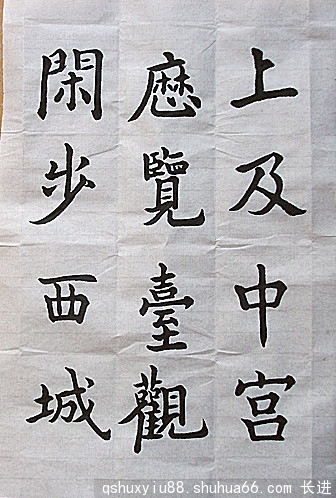 上及中宫
歷覽臺觀
閑步西城
qshuxyiu88.shuhua66.com 长进